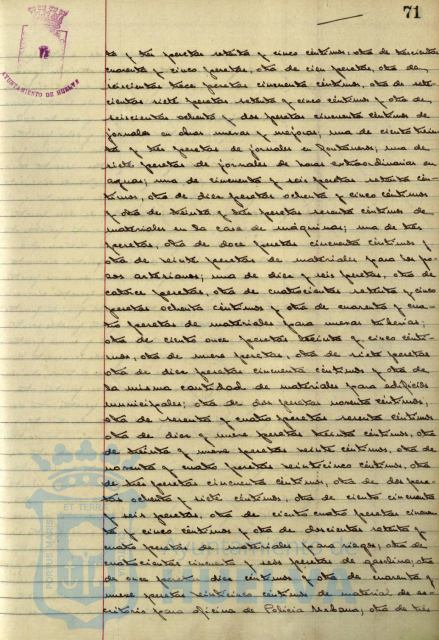 71
AYUNTAMIENTO DE HUELVA
ta y tres pesetas setenta y cinco céntimos; otra de trescientas
cuarenta y cinco pesetas, otra de cien pesetas, otra de
seiscientas trece pesetas cincuenta céntimos, otra de sete
cientas siete pesetas setenta y cinco céntimos y otra de
seiscientas ochenta y dos pesetas cincuenta céntimos de
jornales en obras nuevas y mejoras; una de ciento trein
ta y tres pesetas de jornales en fontaneros; una de
siete pesetas de jornales de horas extraordinarias en
aguas; una de cincuenta y seis pesetas setenta cén-
timos, otra de diez pesetas ochenta y cinco céntimos
y otra de treinta y tres pesetas sesenta céntimos de
materiales en la casa de máquinas; una de tres
pesetas, otra de doce pesetas cincuenta céntimos y
otra de veinte pesetas de materiales para los po-
zos artesianos; una de diez y seis pesetas, otra de
catorce pesetas, otra de cuatrocientas setenta y cinco
pesetas ochenta céntimos y otra de cuarenta y cua-
tro pesetas de materiales para nuevas tuberías;
otra de ciento once pesetas treinta y cinco cénti-
mos, otra de nueve pesetas, otra de siete pesetas
otra de diez pesetas cincuenta céntimos y otra de
la misma cantidad de materiales para edificios
municipales; otra de dos pesetas noventa céntimos,
otra de sesenta y cuatro pesetas sesenta céntimos
otra de diez y nueve pesetas treinta céntimos, otra
de treinta y nueve pesetas veinte céntimos, otra de
noventa y cuatro pesetas veinticinco céntimos, otra
de tres pesetas cincuenta céntimos, otra de dos pese-
tas ochenta y siete céntimos, otra de ciento cincuenta
y seis pesetas, otra de ciento cuatro pesetas cincuen
ta y cinco céntimos y otra de doscientas setenta y
cuatro pesetas de materiales para riegos; otra de
cuatrocientas cincuenta y seis pesetas de gasolina; otra
de once pesetas diez céntimos y otra de cuarenta y
nueve pesetas veinticinco céntimos de material de es-
critorio para oficina de Policía Urbana, otra de tres